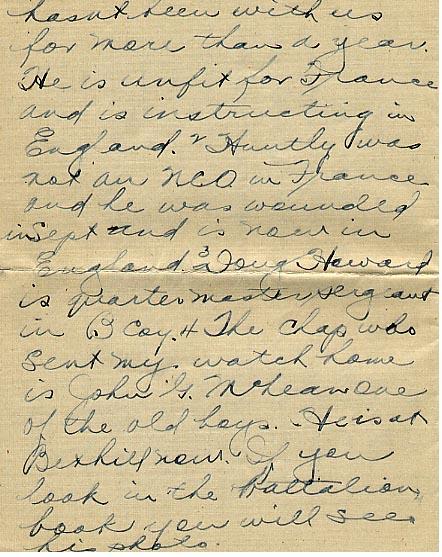 hasn't been with us
for more than a year.
He is unfit for France
and is instructing in
England. 2 Huntly was
not an NCO in France
and he was wounded
in Sept and is now in
England. 3 Doug Howard
is quartermaster, sergeant
in B Coy. 4 The chap who
sent my watch home
is John G. McLean one
of the old boys. He is at
Bexhill now. If you
look in the Battalion
book you will see
his photo.